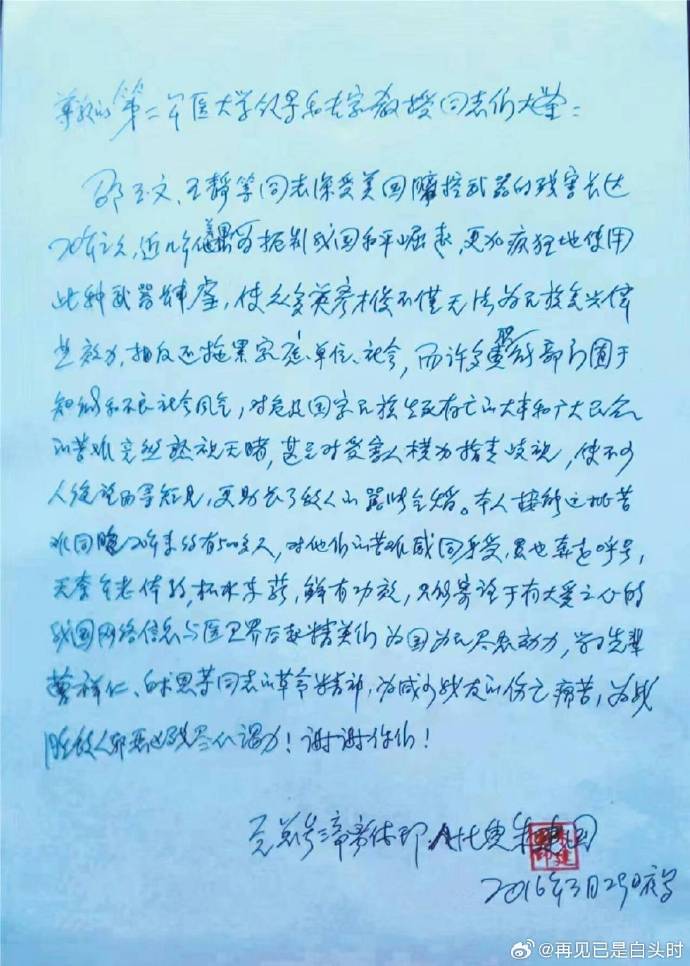 尊敬的第二军医大学领导和专家教授同志们大鉴：
邵玉文、王静等同志深受美国脑控武器的残害长达
20年之久，近几年美国为扼制我国和平崛起，更加疯狂地使用
此种武器，使众多英彦才俊不仅无法为民族复兴伟
业效力，相反还拖累家庭、单位、社会，而许多职能部门囿于
知识和不良社会风气，对危及国家民族生死存亡的大事和广大民众
的苦难竟然熟视无睹，甚至对受害人横加指责歧视，使不少
人绝望而寻短见，更助长了敌人的嚣张气焰。本人接触这批苦
难同胞20年来约有500多人，对他们的苦难感同身受，累也奔走呼号，
无奈年老体弱，杯水车薪，鲜有功效，只能寄语于有大爱之心的
我国网络信息与医卫界后起精英们为国为民尽忠效力，学习先辈
祥仁、白求恩等同志的革命精神，为减少战友的伤亡痛苦，为战
胜敌人邪恶凶残尽心竭力！谢谢你们！
2016年3月29日夜
@再见已是白头时